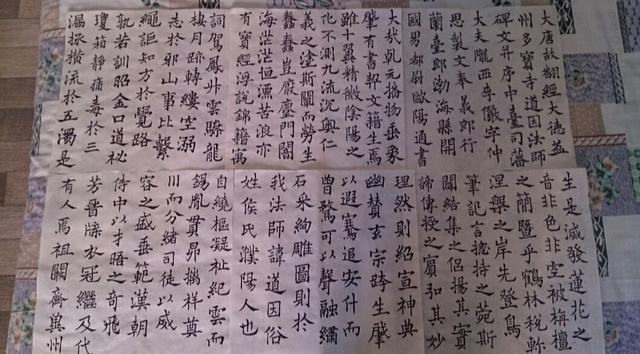 大唐故翻經大德益
州多寶寺道因法師
碑文并序中臺司藩
大夫隴西李儼字仲
思製文奉義郎行
蘭臺郎渤海縣開
國男都尉歐陽通書
大哉乾元播物垂象
肇有書契文籍生焉
雖十翼精微陰陽之
化不測九流沉奧仁
義之塗斯闡而勞生
蠢蠢豈厭塵門闊
海茫茫恒漂苦浪亦
有寶經浮說錦籍寓
詞駕鳳升雲驂龍
棲月跡轉縷空溺
志於邪山事比繫
繩詎知方於覺路
孰若訓昭金口道秘
瓊箱靜痛毒於三
漏拯橫流於五濁是
生是滅發蓮花之
音非色非空被栴檀
之簡暨乎鶴林稅
涅槃之岸先登鳥
筆記言揔持之菀斯
闢結集之侶揚其實
諦傳授之賓弘其妙
理然則紹宣神典
幽贊玄宗跨生肇
以遐騫追安什而
曾騖可以聲融繡
石采絢雕圖則於
我法師諱道因俗
姓侯氏濮陽人也
自繞樞凝祉紀雲而
錫胤貫昴摛祥奠
川而分緒司徒以威
容之盛垂範漢朝
侍中以才晤之奇飛
芳晉牒衣冠繼及代
有人焉祖闓齊冀州